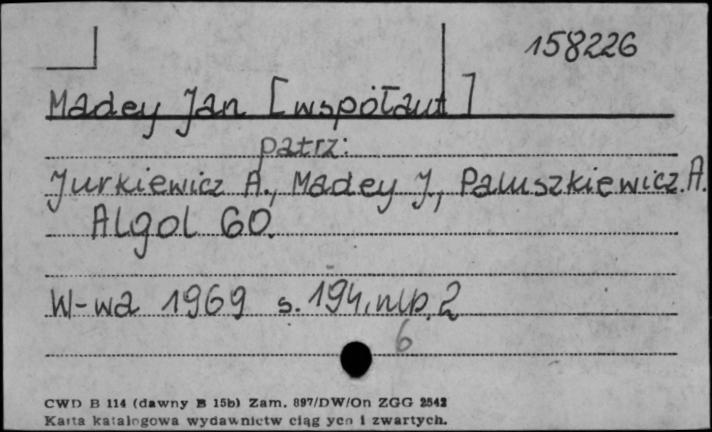 158226
Madey Jan [współaut]
patrz:
Jurkiewicz A., Madey J., Paluszkiewicz. A.
Algol 60.
W-wa 1969 s. 194, nlb. 2
6
CWD B 114 (dawny B 15b) Zam. 897/DW/On ZGG 2542
Karta katalogowa wydawnictw ciąg ych i zwartych.